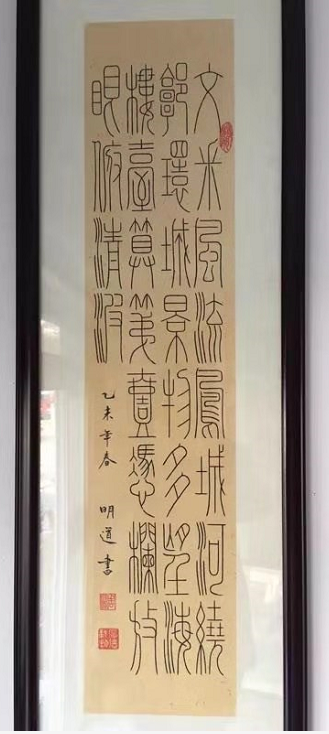 文采風流鳳城河繞
郭環城景物多望海
樓臺算第壹憑欄放
眼俯清波
乙未年春 明道書